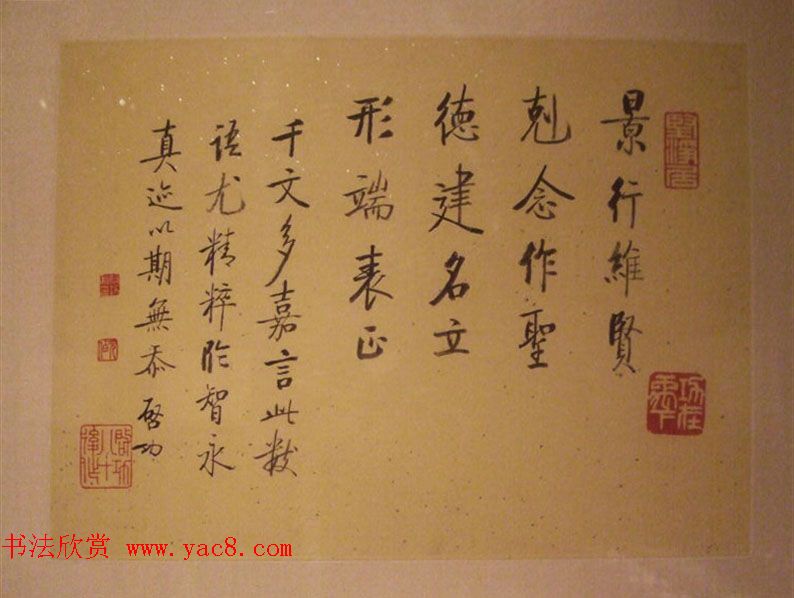 景行維賢
剋念作聖
德建名立
形端表正
千文多嘉言此數
語尤精粹臨智永
真迹以期無忝 啓功
书法欣赏 www.yac8.com